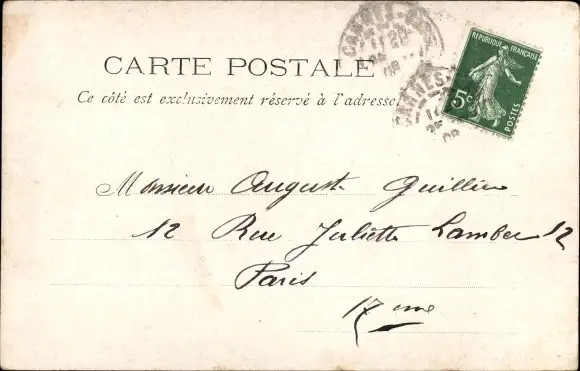 CARTE POSTALE
Ce côté est exclusivement réservé à l'adresse
REPUBLIQUE FRANÇAISE
5c
POSTES
CANNES
08
CANNES
08
Monsieur August Guillien
12 Rue Juliette Lamber 12
Paris
17 me